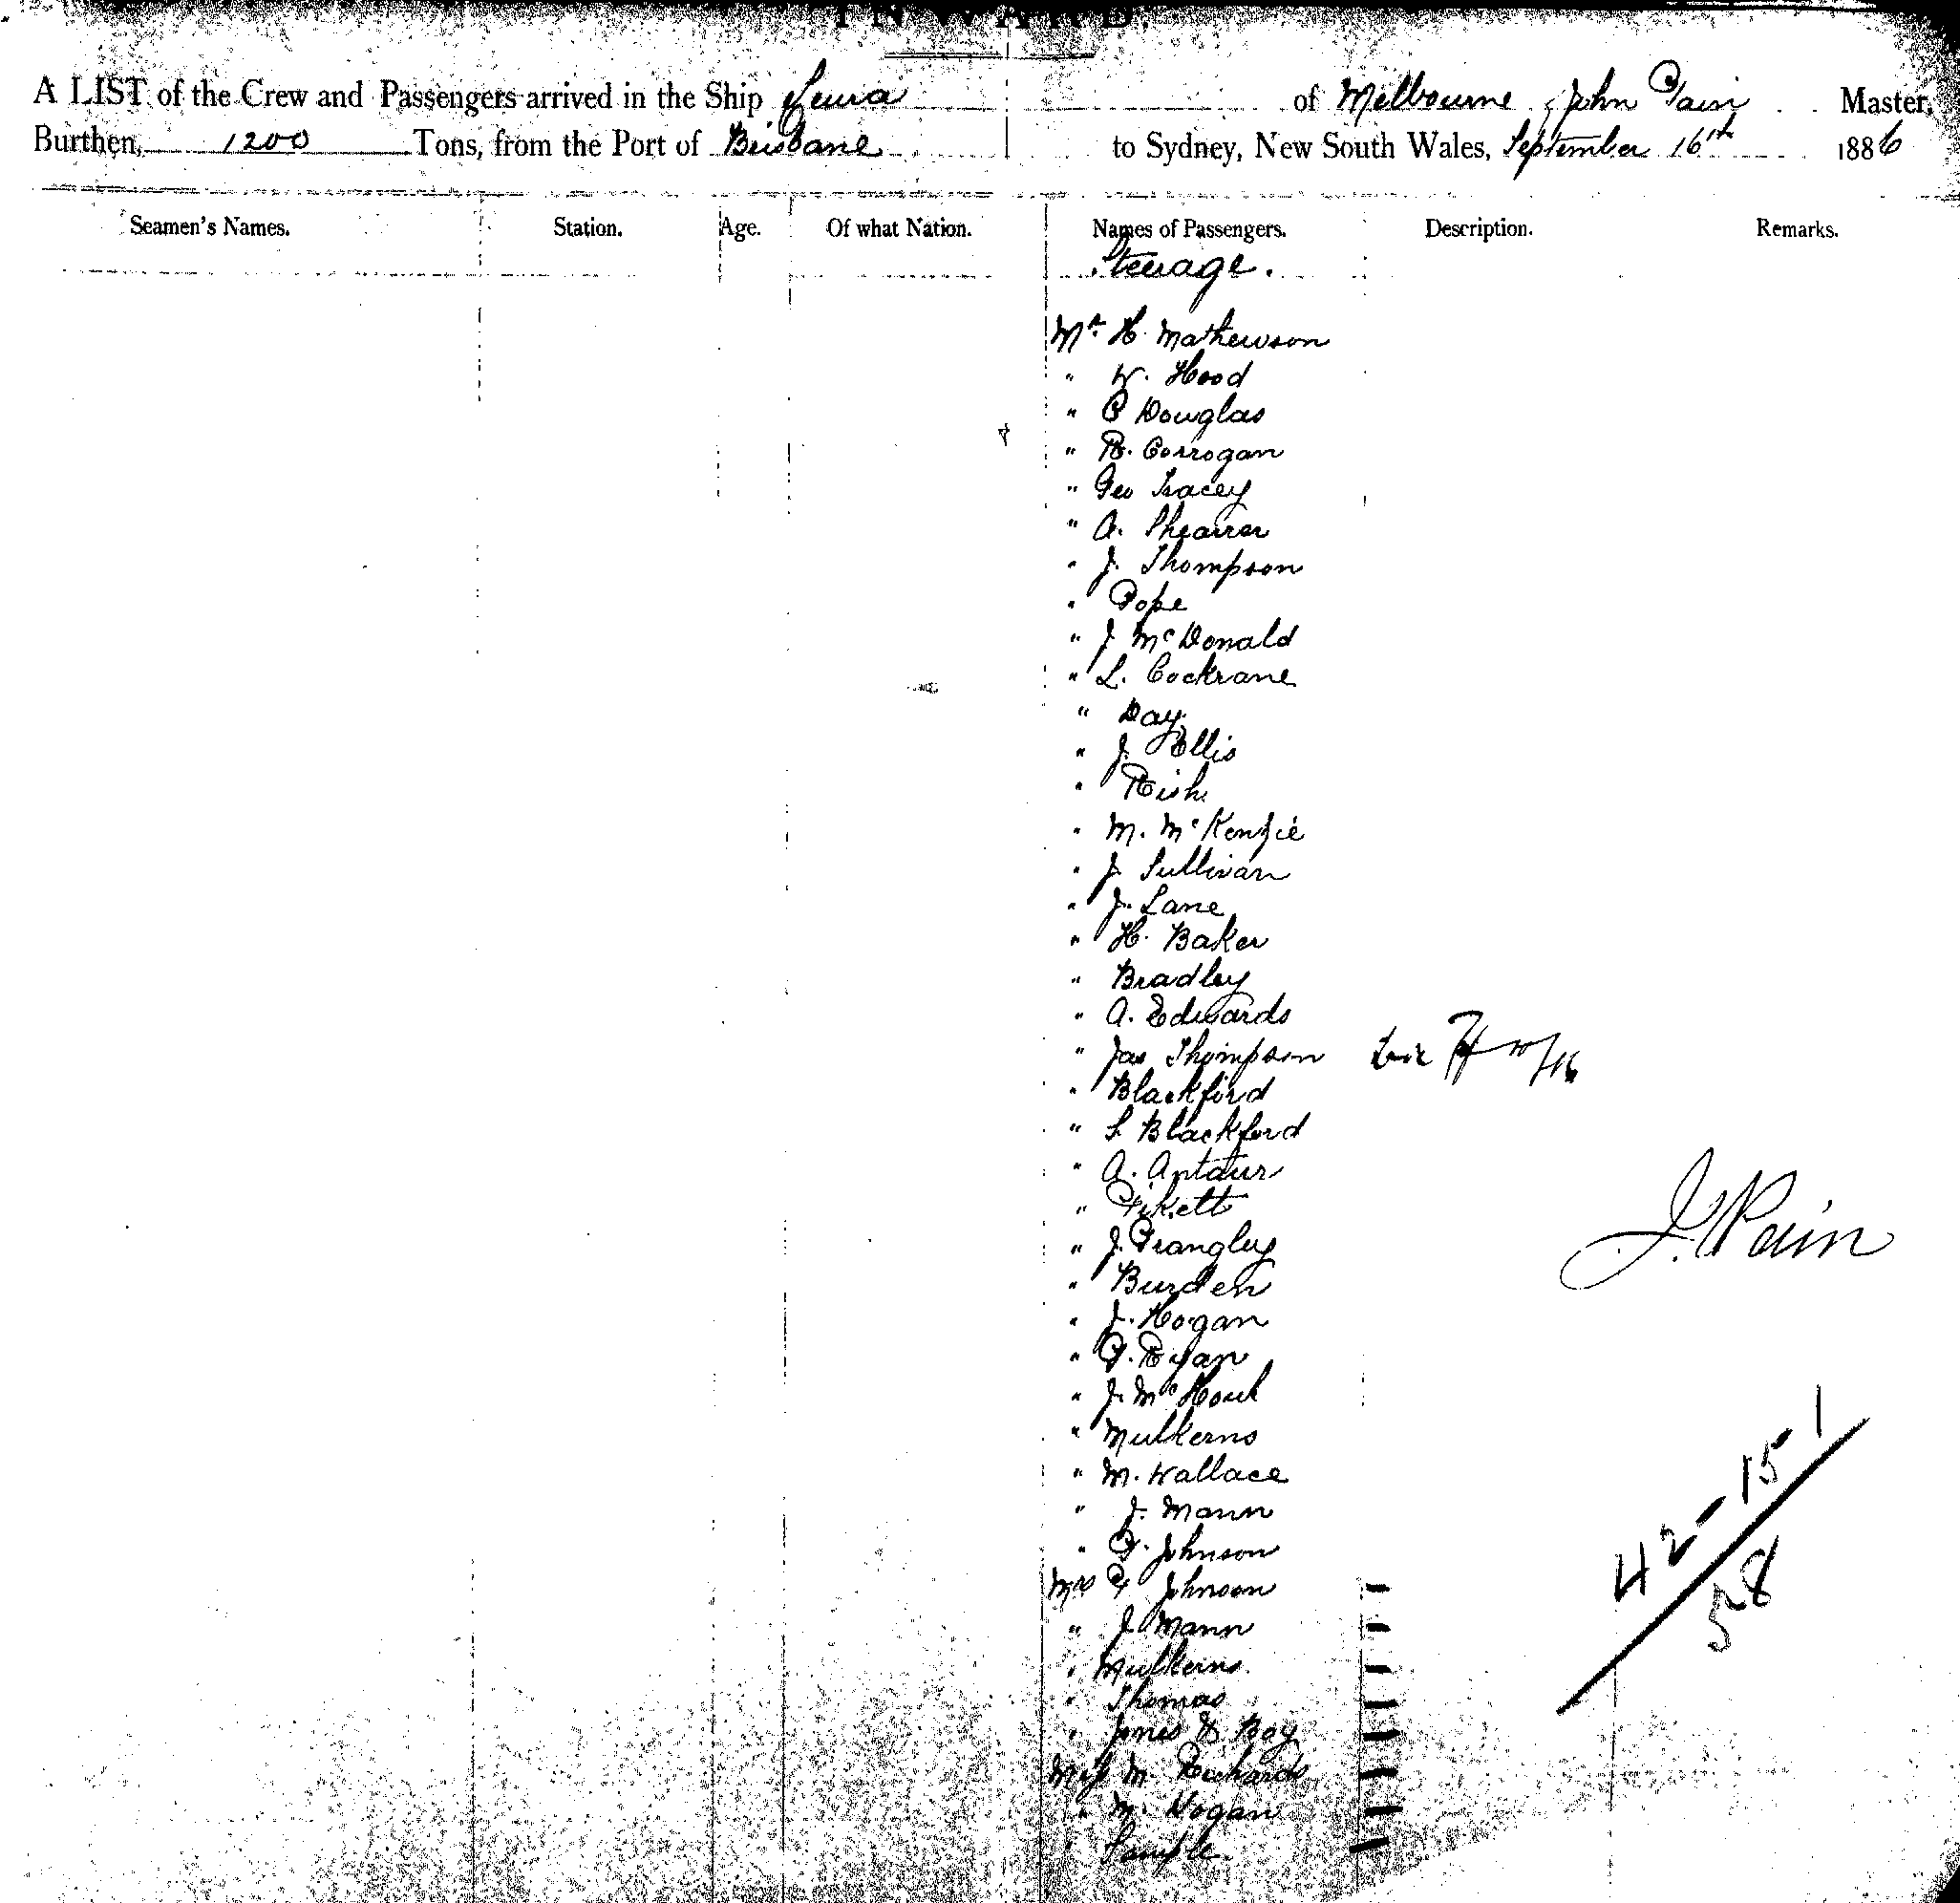 INWARD.
A LIST of the Crew and Passengers arrived in the Ship Leura of Melbourne, John Pain Master,
Burthen, 1200 Tons, from the Port of Brisbane to Sydney, New South Wales, September 16th 1886
Seamen's Names. Station. Age. Of what Nation. Names of Passengers. Description. Remarks.
Steerage.
Mr H. Mathewson
" W. Hood
" P Douglas
" R. Corrogan
" Geo Tracey
" A. Shearer
" J. Thompson
" Pope
" J McDonald
" L. Cockrane
" Day
" J. Ellis
" Rish
" M. McKenzie
" J Sullivan
" J. Lane
" H. Baker
" Bradley
" A. Edwards
" Jas Thompson
" Blackford
" S. Blackford
" A.
" Pikett
" J. Prangley
" Burden
" J. Hogan
" P. Ryan
" J. Mc
" Mulkerns
" M. Wallace
" J. Mann
" P. Johnson
Mrs P Johnson
" J Mann
" Mulkerns
" Thomas
" Jones & Boy
Miss M. Richards
" M. Hogan
" Sample
J. Pain
42-15-1
58